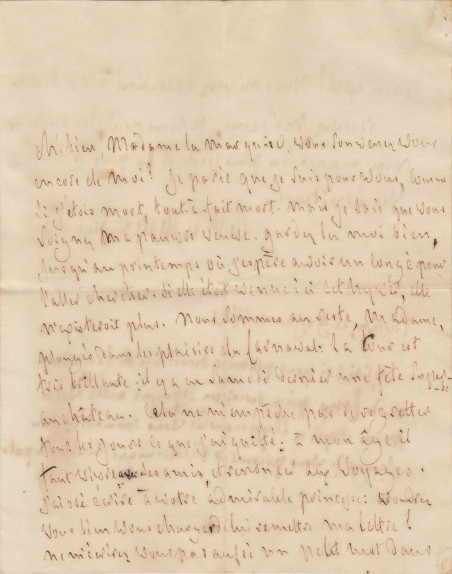 eh bien, Madame la marquise, vous souvenez vous
encore de moi? Je parie que je suis pour vous, comme
si j'etois mort, tout à fait mort. mais je sais que vous
soignez ma pauvre veuve. gardez la moi bien,
jusqu'au printemps où j'espère avoir un congé pour
l'aller chercher. si elle etoit venue ici cet hyver, elle
n'existeroit plus. Nous sommes au reste, Madame,
plongés dans les plaisirs du Carnaval. la Cour est
très brillante: il y a eu samedi dernier une fête superbe
au château. Cela ne m'empêche pas de regretter
tous les jours ce que j'ai quitté: à mon âge il
faut vivre avec des amis, et renoncer aux voyages.
j'ai osé ecrire à votre admirable princesse: voudrez
vous bien vous charger de lui remettre ma lettre!
ne m'écrirez vous pas aussi un petit mot dans